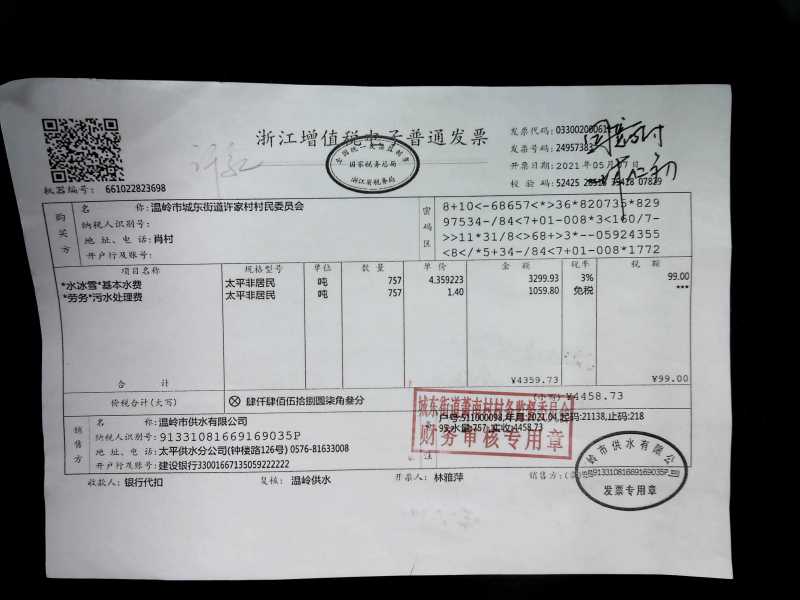 浙江增值税电子普通发票
全国统一发票监制章
国家税务总局
浙江省税务局
机器编号: 661022823698
发票代码: 033002000611
发票号码: 24957383
开票日期: 2021年05月07日
校验码: 52425 28518 35418 07829
同意支付
购买方
名称: 温岭市城东街道许家村村民委员会
纳税人识别号:
地址、电话: 肖村
开户行及账号:
密码区
8+10<-68657<*>36*820735*829
97534-/84<7+01-008*3<160/7-
>>11*31/8<>68+>3*--05924355
<8</*5+34-/84<7+01-008*1772
项目名称 规格型号 单位 数量 单价 金额 税率 税额
*水冰雪*基本水费 太平非居民 吨 757 4.359223 3299.93 3% 99.00
*劳务*污水处理费 太平非居民 吨 757 1.40 1059.80 免税 ***
合计 ¥4359.73 ¥99.00
价税合计(大写) ⊗ 肆仟肆佰伍拾捌圆柒角叁分 (小写) ¥4458.73
销售方
名称: 温岭市供水有限公司
纳税人识别号: 91331081669169035P
地址、电话: 太平供水分公司(钟楼路126号) 0576-81633008
开户行及账号: 建设银行33001667135059222222
备注
户号:511000098,年月:2021.04,起码:21138,止码:218
95,水量:757,实收:4458.73
城东街道萧南村村务监督委员会
财务审核专用章
收款人: 银行代扣 复核: 温岭供水 开票人: 林雅萍 销售方: (章)
温岭市供水有限公司
91331081669169035P
发票专用章